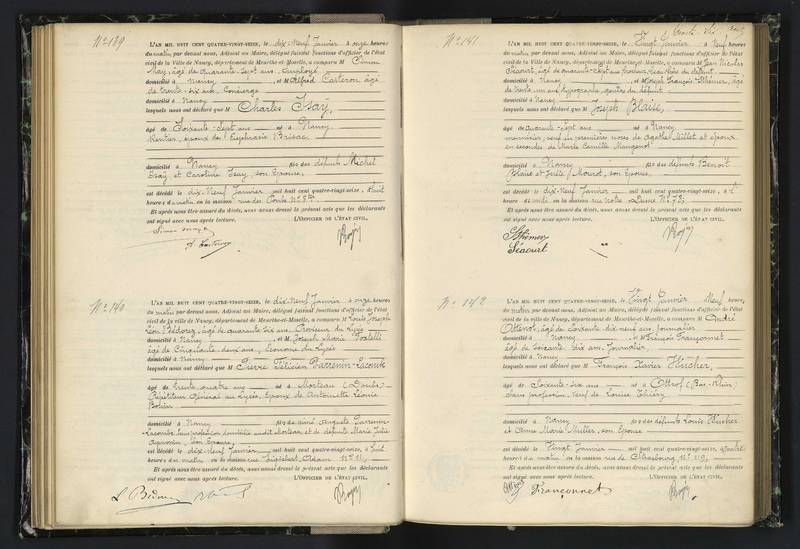 N° 139
L'AN MIL HUIT CENT QUATRE-VINGT-SEIZE, le dix-Neuf Janvier à onze heures
du matin par devant nous, Adjoint au Maire, délégué faisant fonctions d'officier de l'état
civil de la Ville de Nancy, département de Meurthe-et-Moselle, a comparu M Simon
May, âgé de Quarante-Sept ans, employé
domicilié à Nancy, et M Alfred Carteron âgé
de trente-six ans, Concierge
domicilié à Nancy
lesquels nous ont déclaré que M Charles Isaÿ,
âgé de Soixante-Sept ans né à Nancy
Rentier, époux de Euphrasie Brisac
domicilié à Nancy fils des défunts Michel
Isaÿ et Caroline Isay, son Epouse,
est décédé le dix-Neuf Janvier mil huit cent quatre-vingt-seize, à huit
heures du matin, en la maison rue des Ponts N°
Et après nous être assuré du décès, nous avons dressé le présent acte que les déclarants
ont signé avec nous après lecture. L'OFFICIER DE L'ÉTAT CIVIL,
A. Carteron
N° 140
L'AN MIL HUIT CENT QUATRE-VINGT-SEIZE, le dix-Neuf Janvier à onze heures
du matin par devant nous, Adjoint au Maire, délégué faisant fonctions d'officier de l'état
civil de la ville de Nancy, département de Meurthe-et-Moselle, a comparu M Louis Joseph
Léon âgé de quarante six ans, Proviseur du Lycée
domicilié à Nancy, et M Joseph Marie
âgé de Cinquante deux ans, économe du Lycée
domicilié à Nancy
lesquels nous ont déclaré que M Pierre Félicien Parrenin-Lacombe
âgé de trente quatre ans né à Morteau (Doubs)
Répétiteur Général au Lycée, Epoux de Antoinette Léonie
domicilié à Nancy fils de Auguste Parrenin-
Lacombe, sans profession, domicilié audit Morteau et de défunte Marie Julie
son Epouse,
est décédé le dix-Neuf Janvier mil huit cent quatre-vingt-seize, à huit
heures du matin en la maison rue Sigisbert Adam N° 11,
Et après nous être assuré du décès, nous avons dressé le présent acte que les déclarants
ont signé avec nous après lecture. L'OFFICIER DE L'ÉTAT CIVIL,
N° 141
L'AN MIL HUIT CENT QUATRE-VINGT-SEIZE, le Vingt Janvier à Neuf heures
du matin par devant nous, Adjoint au Maire, délégué faisant fonctions d'officier de l'état
civil de la Ville de Nancy, département de Meurthe-et-Moselle, a comparu M Jean Nicolas
Séacourt, âgé de quarante-Sept ans du défunt
domicilié à Nancy, et M Joseph François Sthémer, âgé
de trente un ans, typographe, gendre du défunt
domicilié à Nancy
lesquels nous ont déclaré que M Joseph Blaise,
âgé de Quarante-Sept ans né à Nancy
veuf en premières noces de Agathe Millet et époux
en secondes de Marie Camille Mangenot
domicilié à Nancy fils des défunts Benoît
Blaise et Julie Mourot, son Epouse,
est décédé le dix-Neuf Janvier mil huit cent quatre-vingt-seize, à
heures en la maison rue notre Dame N° 72
Et après nous être assuré du décès, nous avons dressé le présent acte que les déclarants
ont signé avec nous après lecture. L'OFFICIER DE L'ÉTAT CIVIL,
Sthémer
Séacourt
N° 142
L'AN MIL HUIT CENT QUATRE-VINGT-SEIZE, le Vingt Janvier Neuf heures
du matin par devant nous, Adjoint au Maire, délégué faisant fonctions d'officier de l'état
civil de la ville de Nancy, département de Meurthe-et-Moselle, a comparu M André
Ottenot, âgé de Soixante dix-neuf ans, Journalier
domicilié à Nancy, et M François Françonnet
âgé de Soixante dix ans, Journalier,
domicilié à Nancy
lesquels nous ont déclaré que M François Xavier Hucher,
âgé de Soixante-Six ans né à Ottrot (Bas-Rhin)
Sans profession, Veuf de Louise Thiéry
domicilié à Nancy fils des défunts Louis Hucher
et Anne Marie Muller, son Epouse
est décédé le Vingt Janvier mil huit cent quatre-vingt-seize, à quatre
heures du matin en la maison rue de Strasbourg N° 119,
Et après nous être assuré du décès, nous avons dressé le présent acte que les déclarants
ont signé avec nous après lecture. L'OFFICIER DE L'ÉTAT CIVIL,
Françonnet